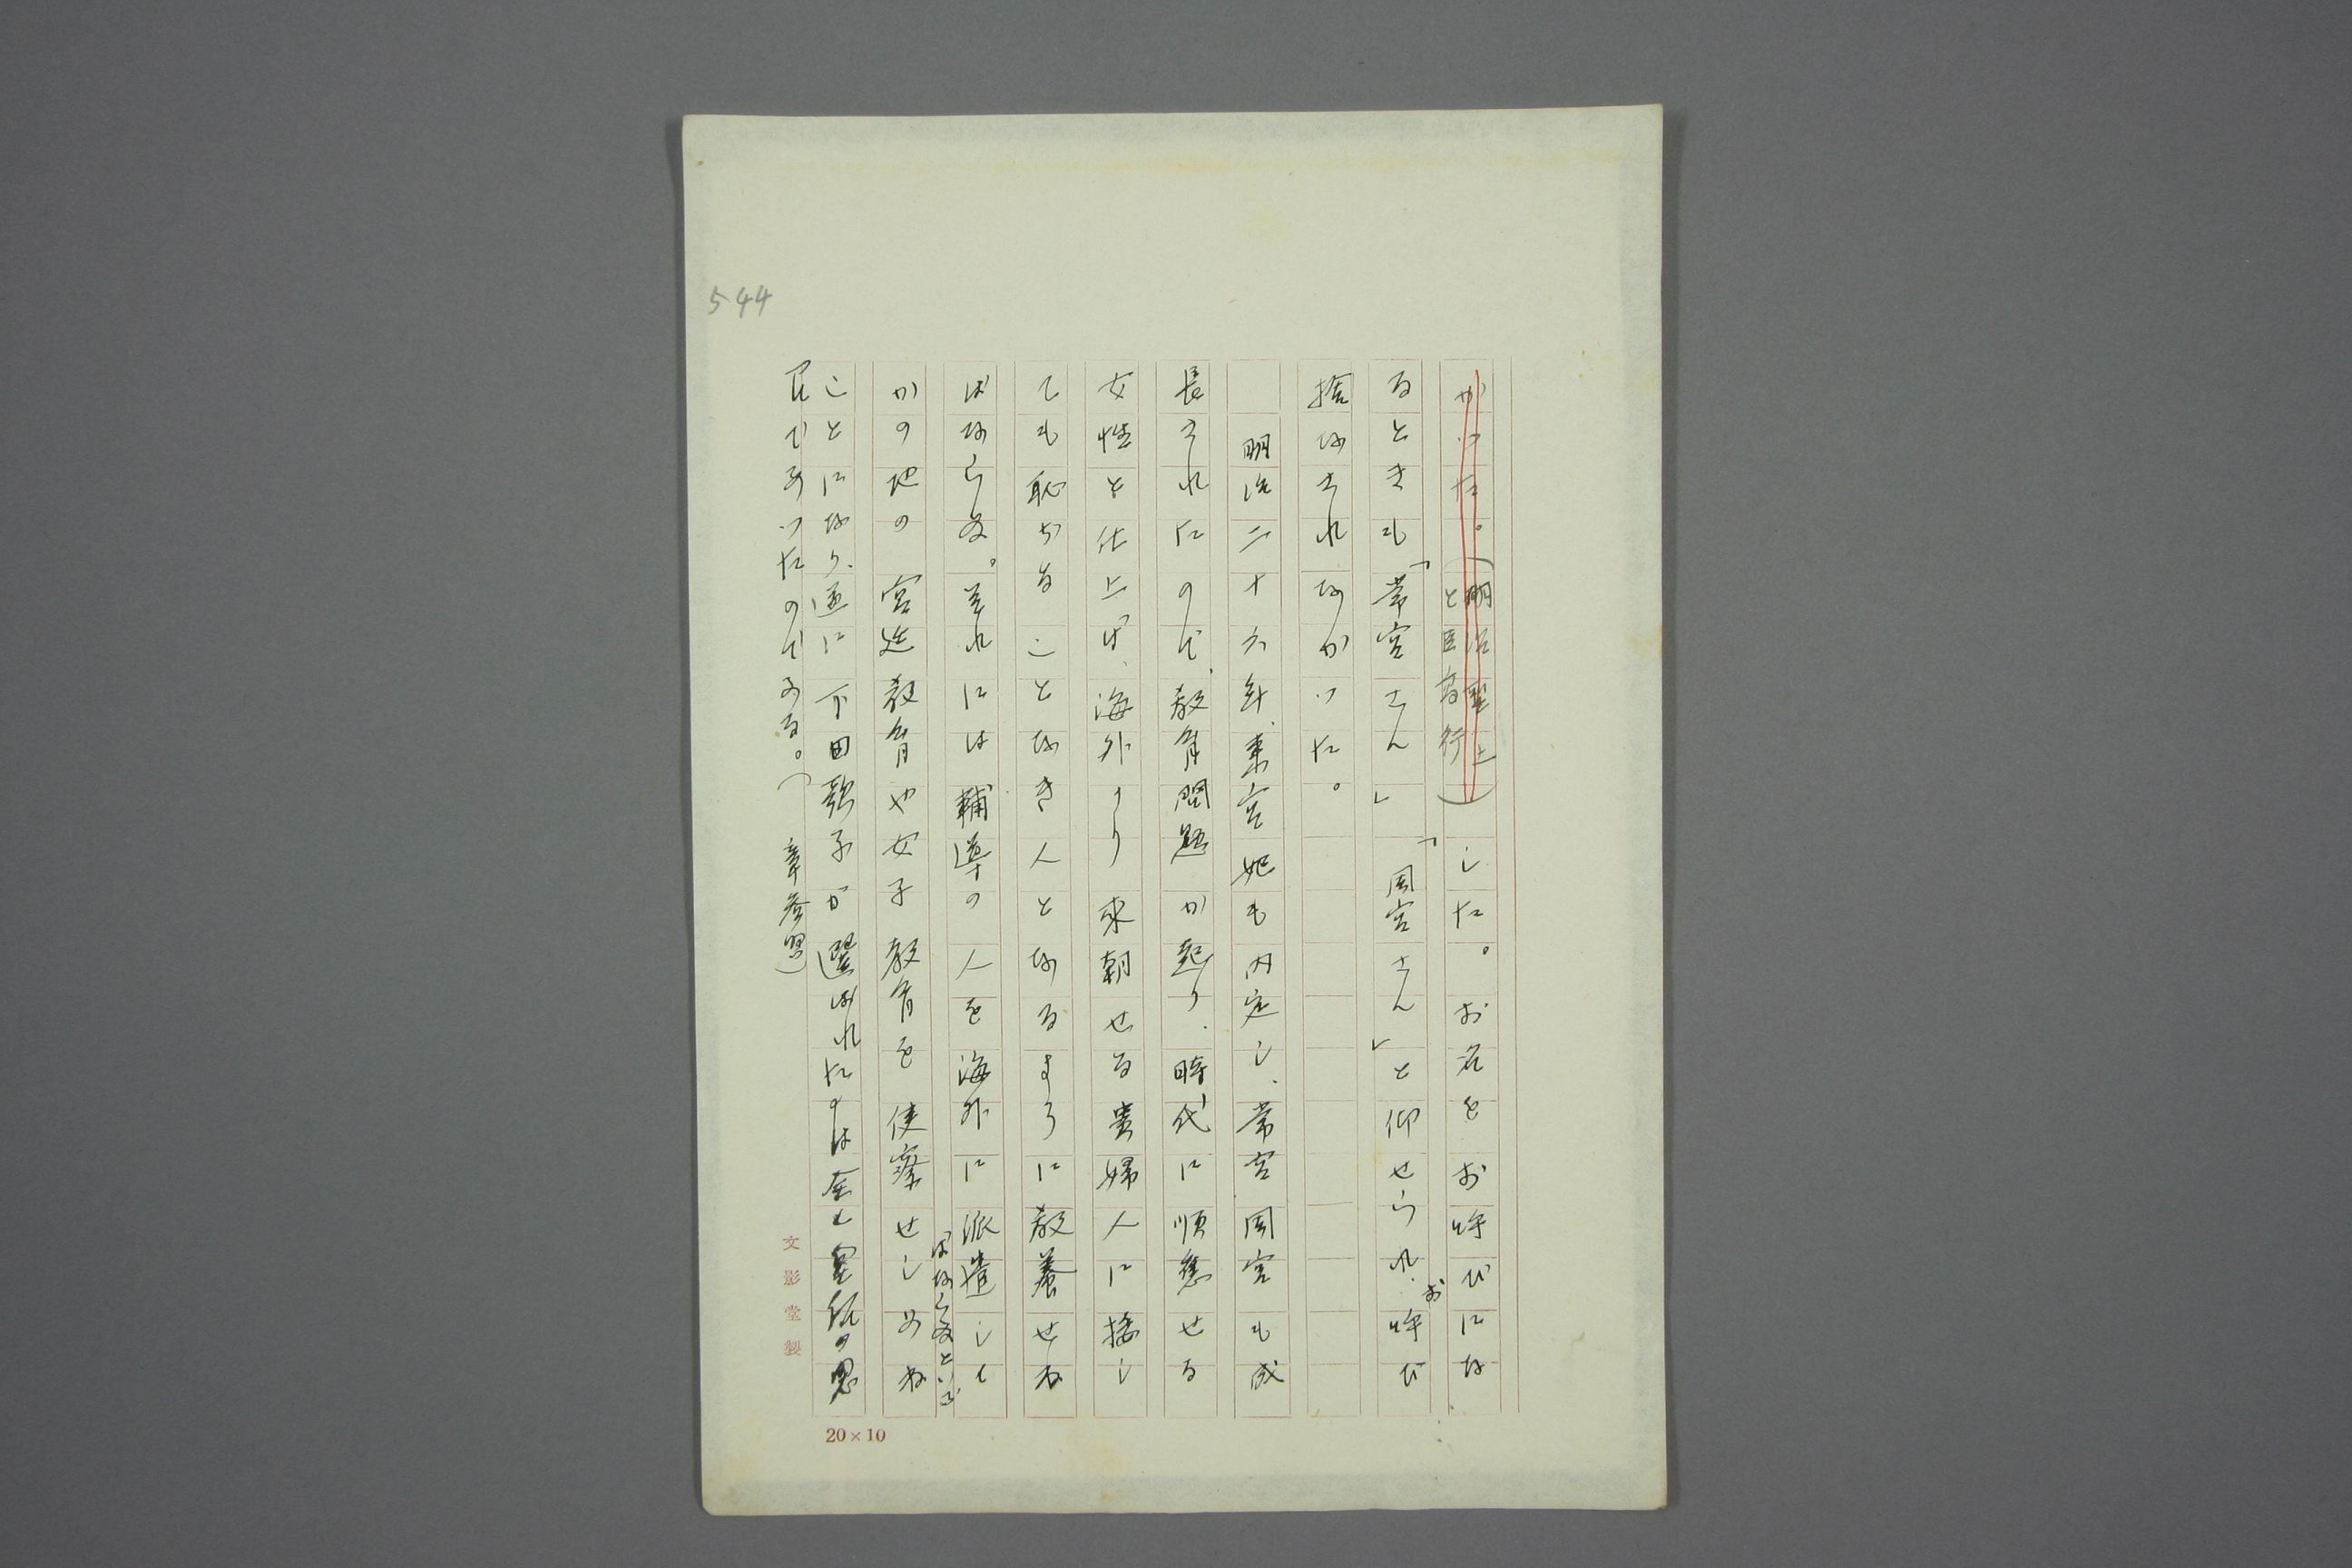 544
かつた。(明治聖上
と臣高行)した。お名をお呼びにな
るときも「常宮さん」「周宮さん」と仰せられ、お呼び
捨なされなかつた。
明治二十六年、東宮妃も内定し、常宮周宮も成
長されたので、教育問題が起り、時代に順応せる
女性と仕上げ、海外より来朝せる貴婦人に接し
ても恥ぢることなき人となるように教養せね
ばならぬ。それには輔導の人を海外に派遣して
かの地の宮廷教育や女子教育を視察せしめね
ばならぬといふ
ことになり、遂に下田歌子が選ばれたのは全く皇后の思
召であつたのである。)
章参照)
文影堂製
20×10